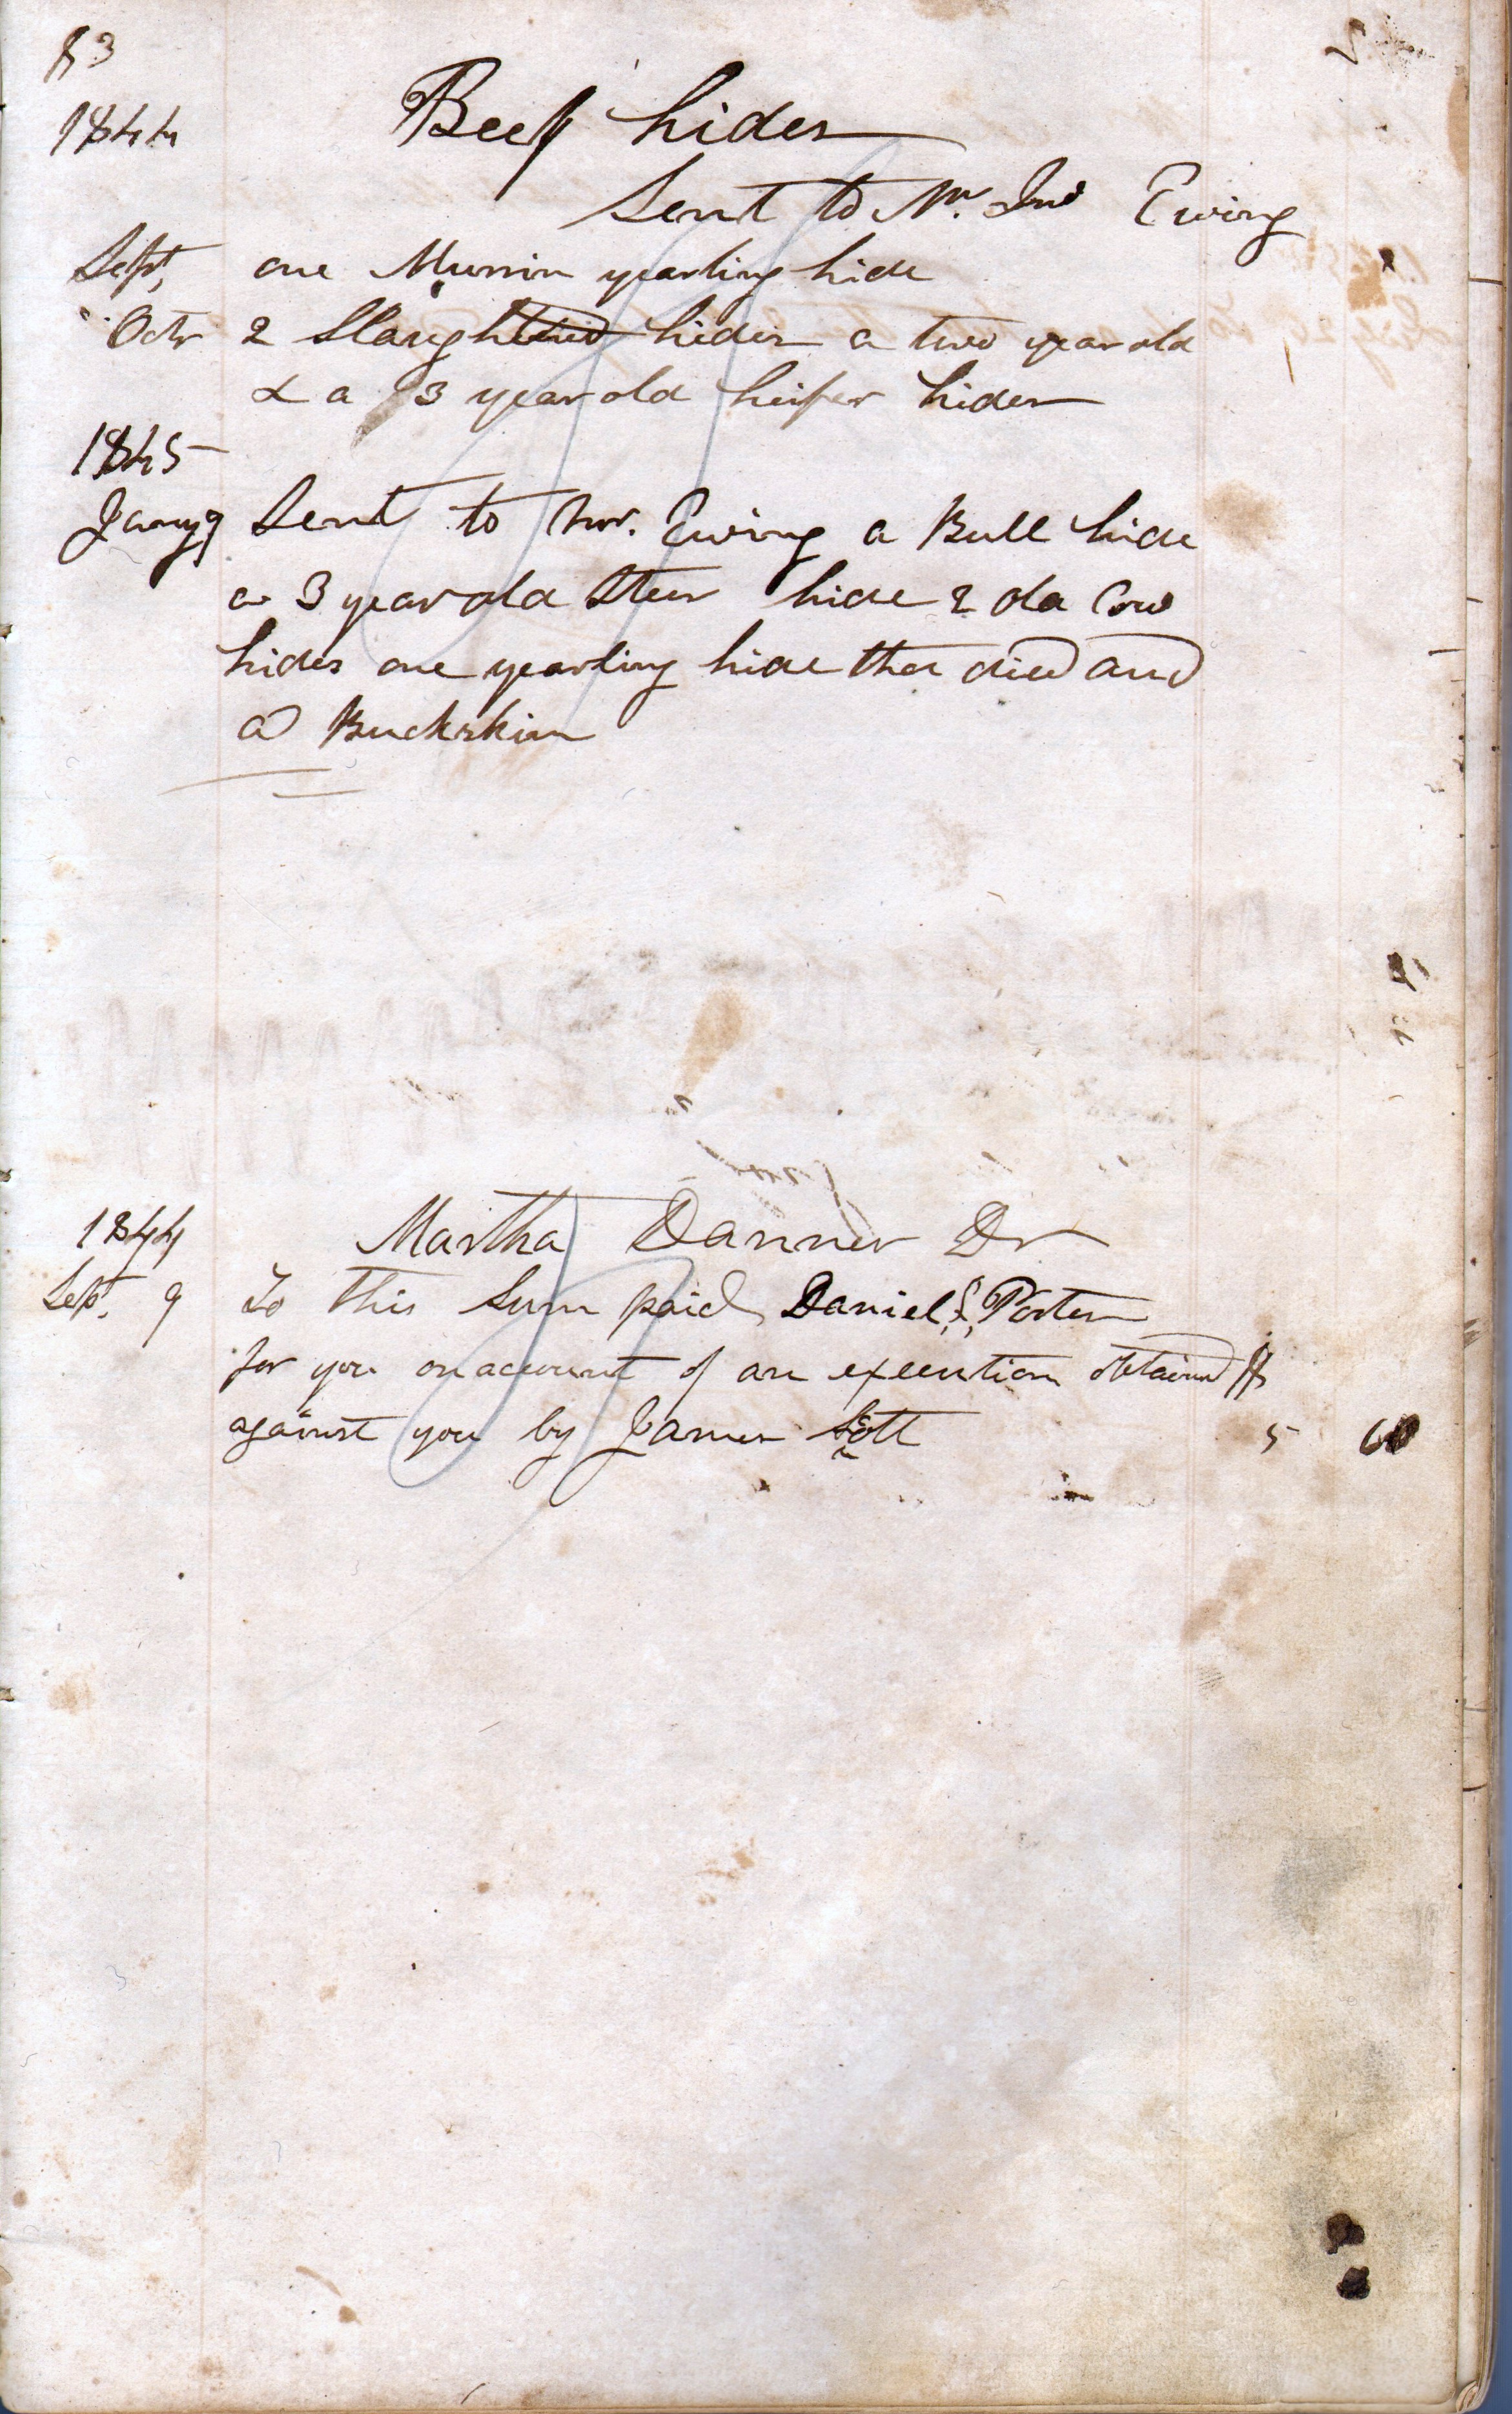 83
1844
Beef hides
Sent to Mr. Jno Ewing
Sept, one Murrin yearling hide
Octr 2 Slaughtered hides a two year old
& a 3 year old heifer hides
1845
Jany 9 Sent to Mr. Ewing a Bull hide
a 3 year old Steer hide 2 old Cow
hides one yearling hide that died and
a Buckskin
1844
Martha Danner Dr
Sept. 9 To this Sum paid Daniel Porter
for you on account of an execution obtained $
against you by James Scott 5 60